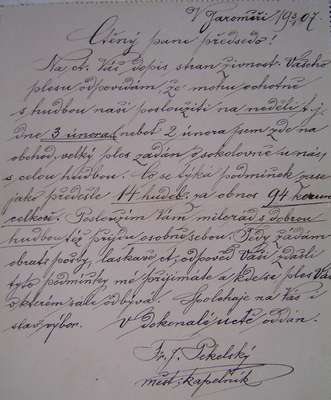 V Jaroměři 19 07.
Ctěný pane předsedo!
Na ct. Váš dopis stran živnost. Vašeho
plesu odpovídám, že mohu ochotně
s hudbou naší posloužiti na neděli t. j.
dne 3 února neboť 2 února jsem zde na
obchod. velký ples zadán v sokolovně u nás,
s celou hudbou. Co se týká podmínek zase
jako předešle 14 hudeb. za obnos 94 korun
celkoš. Posloužím Vám milerád s dobrou
hudbou též přijdu osobně sebou. Tedy žádám
obratí pošty, laskavé ct. odpověď Vaší zdali
tyto podmínky mé přijímáte a kde se ples Váš
v kterém sále odbývá. Spoléhaje na Vás i
slav. výbor. V dokonalé úctě oddán.
Fr. J. Pekelský
měst. kapelník